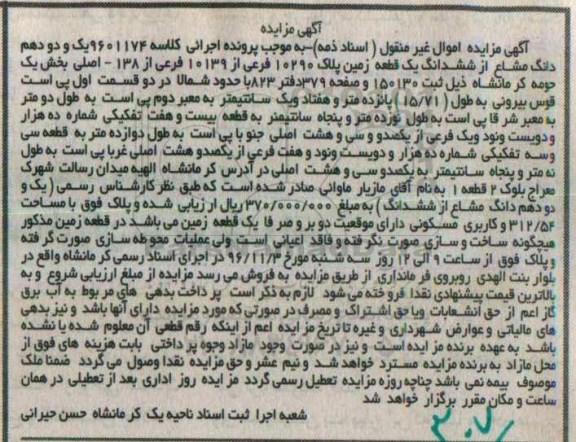 آگهی مزایده
آگهی مزایده اموال غیر منقول ( اسناد ذمه)-به موجب پرونده اجرائی کلاسه ۹۶۰۱۱۷۴یک و دو دهم
دانگ مشاع از ششدانگ یک قطعه زمین پلاک ۱۰۲۹۰ فرعی از ۱۰۱۳۹ فرعی از ۱۳۸ - اصلی بخش یک
حومه کر مانشاه ذیل ثبت ۱۵۰۱۳۰ و صفحه ۳۷۹دفتر ۸۲۳با حدود شمالا در دو قسمت اول پی است
قوس بیرونی به طول ( ۱۵/۷۱) پانزده متر و هفتاد ویک سانتیمتر به معبر دوم پی است به طول دو متر
به معبر شر قا پی است به طول نوزده متر و پنجاه سانتیمتر به قطعه بیست و هفت تفکیکی شماره ده هزار
و دویست ونود ویک فرعی از یکصدو و سی و هشت اصلی جنو با پی است به طول دوازده متر به قطعه سی
و سه تفکیکی شماره ده هزار و دویست ونود و هفت فرعی از یکصدو هشت اصلی غربا پی است به طول
نه متر و پنجاه سانتیمتر به یکصدو سی و هشت اصلی در آدرس کر مانشاه الهیه میدان رسالت شهرک
معراج بلوک ۲ قطعه ۱ به نام آقای مازیار ماوائی صادر شده است که طبق نظر کارشناس رسمی ( یک و
دو دهم دانگ مشاع از ششدانگ ) به مبلغ ۳۷۰/۰۰۰/۰۰۰ ریال ار زیابی شده و پلاک فوق با مساحت
۳۱۲/۵۴ و کاربری مسکونی دارای موقعیت دو بر و صر فا یک قطعه زمین می باشد در قطعه زمین مذکور
هیچگونه ساخت و سازی صورت نگر فته و فاقد اعیانی است ولی عملیات محو طه سازی صورت گر فته
و پلاک فوق از ساعت ۹ الی ۱۲ روز سه شنبه مورخ ۹۶/۱۱/۳ در اجرای اسناد رسمی کر مانشاه واقع در
بلوار بنت الهدی روبروی فر مانداری از طریق مزایده به فروش می رسد مزایده از مبلغ ارزیابی شروع و به
بالاترین قیمت پیشنهادی نقدا فرو خته می شود لازم به ذکر است پر داخت بدهی های مر بوط به آب برق
گاز اعم از حق انشعابات ویا حق اشتراک و مصرف در صورتی که مورد مزایده دارای آنها باشد و نیز بدهی
های مالیاتی و عوارض شهرداری و غیره تا تریخ مز ایده اعم از اینکه رقم قطعی آن معلوم شده یا نشده
باشد به عهده برنده مز ایده است و نیز در صورت وجود مازاد وجوه پر داختی بابت هزینه های فوق از
محل مازاد به برنده مزایده مسترد خواهد شد و نیم عشر و حق مزایده نقدا وصول می گردد ضمنا ملک
موصوف بیمه نمی باشد چناچه روزه مزایده تعطیل رسمی گردد مز ایده روز اداری بعد از تعطیلی در همان
ساعت و مکان مقرر برگزار خواهد شد
شعبه اجرا ثبت اسناد ناحیه یک کر مانشاه حسن حیرانی